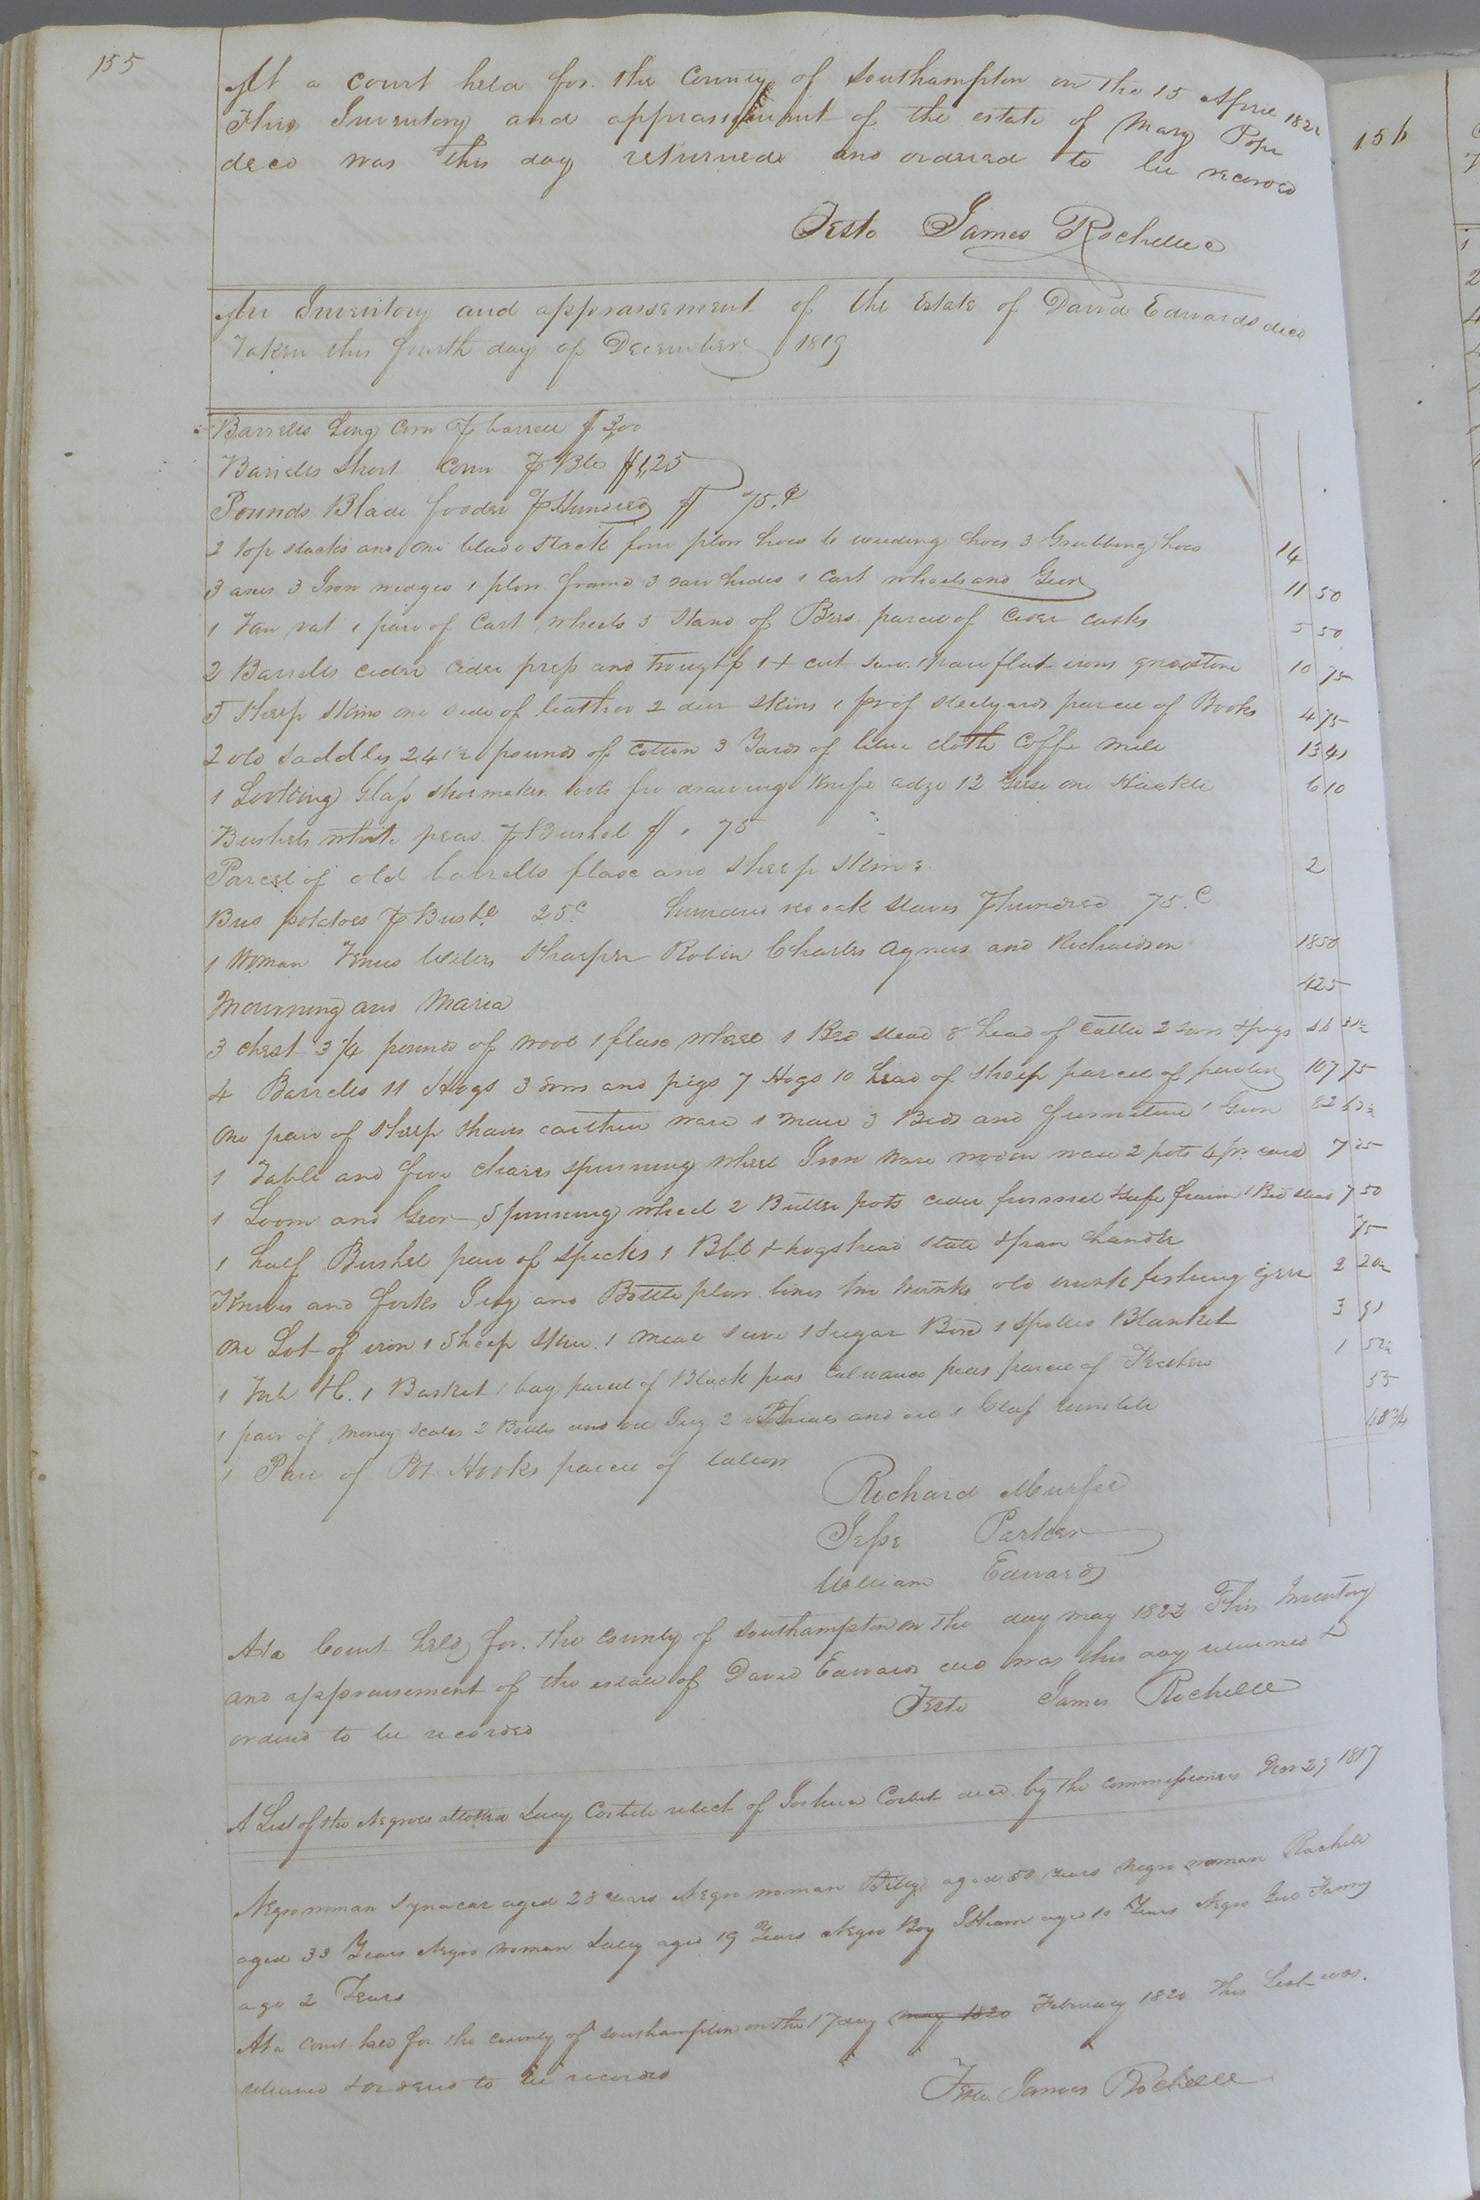 155
At a court held for the County of Southampton on the 15 April 1822
This Inventory and appraisement of the estate of Mary Pope
decd was this day returned and ordered to be recorded
Teste James Rochelle
156
An Inventory and appraisement of the Estate of David Edwards decd
Taken this fourth day of December 1819
Barrells Long Corn ⅌ barrell $ 3,00
Barrells Short Corn ⅌ Bbl $1,25
Pounds Blade fodder ⅌ Hundred $ 75.¢
2 top stacks and one blade stack four plow hoes 6 weeding hoes 3 Grubbing hoes 14
3 axes 3 Iron wedges 1 plow frame 3 raw hides 1 Cart wheels and Geer 11 50
1 Tan vat 1 pair of Cart wheels 5 Stand of Bees parcel of Cider casks 5 50
2 Barrells cider cider press and trought 1 + cut saw 1 pair flat irons grindstone 10 75
5 Sheep skins one side of leather 2 deer skins 1 pr of steelyards parcel of Books 4 75
2 old saddles 24 1/2 pounds of cotton 3 Yards of blue cloth Coffe mill 13 41
1 Looking Glass shoemakers tools fro drawing knife adze 12 Geese one Hackle 6 10
Bushels white peas ⅌ Bushel $ . 75
Parcel of old barrells flax and sheep skins 2
Bus potatoes ⅌ Bushl 25 c hundred red oak staves ⅌ hundred 75. C
1 Woman Venus Sharper Robin Charles Agness and Richardson 1850
Mourning and Maria 425
3 chest 3 3/4 pounds of wool 1 flax wheel 1 Bed stead 8 head of cattle 2 sows & pigs
4 Barrells 11 Hogs 3 sows and pigs 7 Hogs 10 head of Sheep parcel of pewter 107 75
one pair of sheep shairs earthen ware 1 mare 3 Beds and furniture 1 Gun 82
1 Table and five chairs spinning wheel Iron ware wooden ware 2 pots 4 pr. cards 7 25
1 Loom and Geer Spinning wheel 2 Butter pots cider funnel frame 1 Bed stead 7 50
1 half Bushel pair of specks 1 Bbl & hogshead & pan handle 75
Knives and forks Jug and Bottle plow lines two trunks old trunk fishing geer 2
One Lot of iron 1 Sheep skin 1 meal sieve 1 Sugar Box 1 spotted Blanket 3 91
1 Tub &C. 1 Basket 1 bag parcel of Black peas calvance peas parcel of Feathers 1 52½
1 pair of money scales 2 Bottles and one Jug 2 and one 1 Glass tumbler 55
1 Pair of Pot Hooks parcel of tallow 48 3/4
Richard Murfee
Jesse Parker
William Edwards
At a Court held for the county of Southampton on the day may 1822 This Inventory
and appraisement of the estate of David Edwards decd was this day returned &
ordered to be recorded Teste James Rochelle
A List of the Negroes allotted Lucy Corbitt relict of Joshua Corbit decd by the commissioners Decr 29 1817
Negro woman aged 28 years Negro woman aged 50 Years Negro woman Rachell
aged 33 Years Negro woman Lucy aged 19 Years Negro Boy Isham aged 10 Years Negro Girl Fanny
age 2 Years
At a court held for the county of Southampton on the 17 day may 1820 February 1820 This List was
returned & ordered to be recorded
Teste James Rochelle